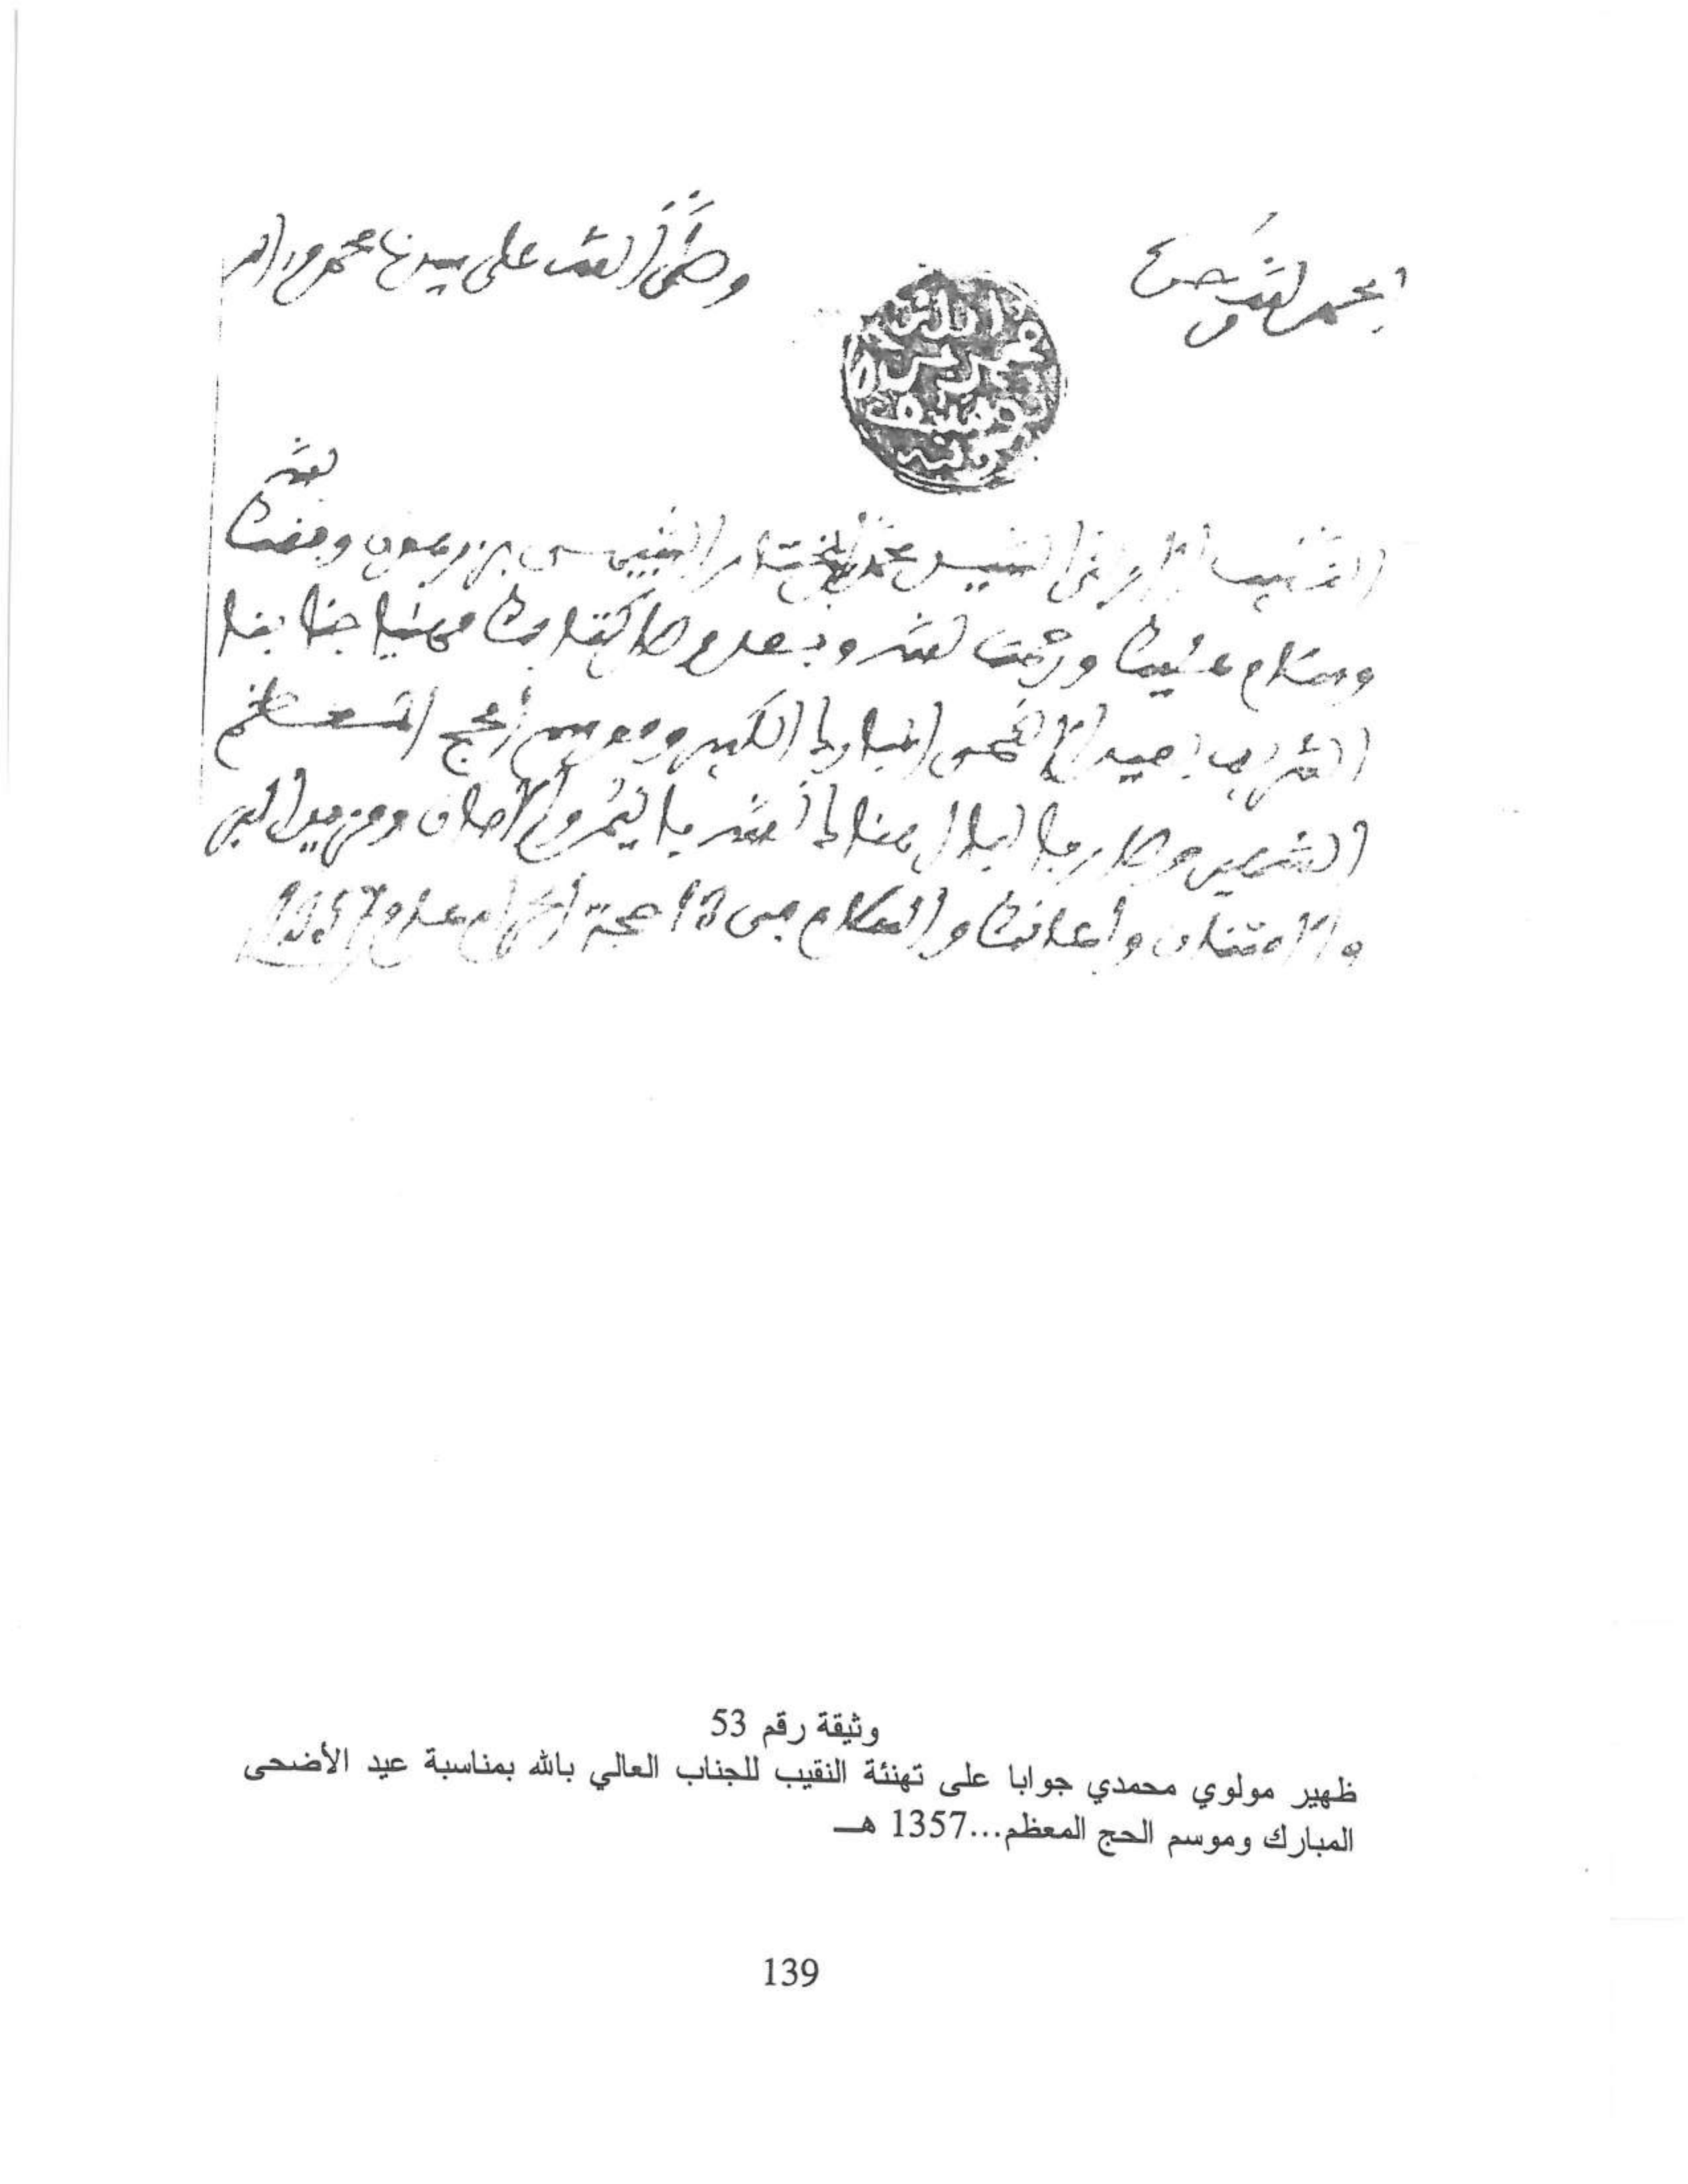 الحمد لله وحده
وصلى الله على سيدنا محمد وآله
الله
النقيب الأرضى الشيخ محمد المختار بن زيدون وفقك
وسلام عليك ورحمت الله وبعد وصل كتابك مهنيا جنابنا
الشريف بعيد الأضحى المبارك الكبير وموسم الحج المعظم
الشهير وصار بالبال هناك الله باليمن والأمان ومزيد البر
والامتنان وأعانك والسلام في 18 حجة الحرام عام 1357
وثيقة رقم 53
ظهير مولوي محمدي جوابا على تهنئة النقيب للجناب العالي بالله بمناسبة عيد الأضحى
المبارك وموسم الحج المعظم...1357 هـ
139